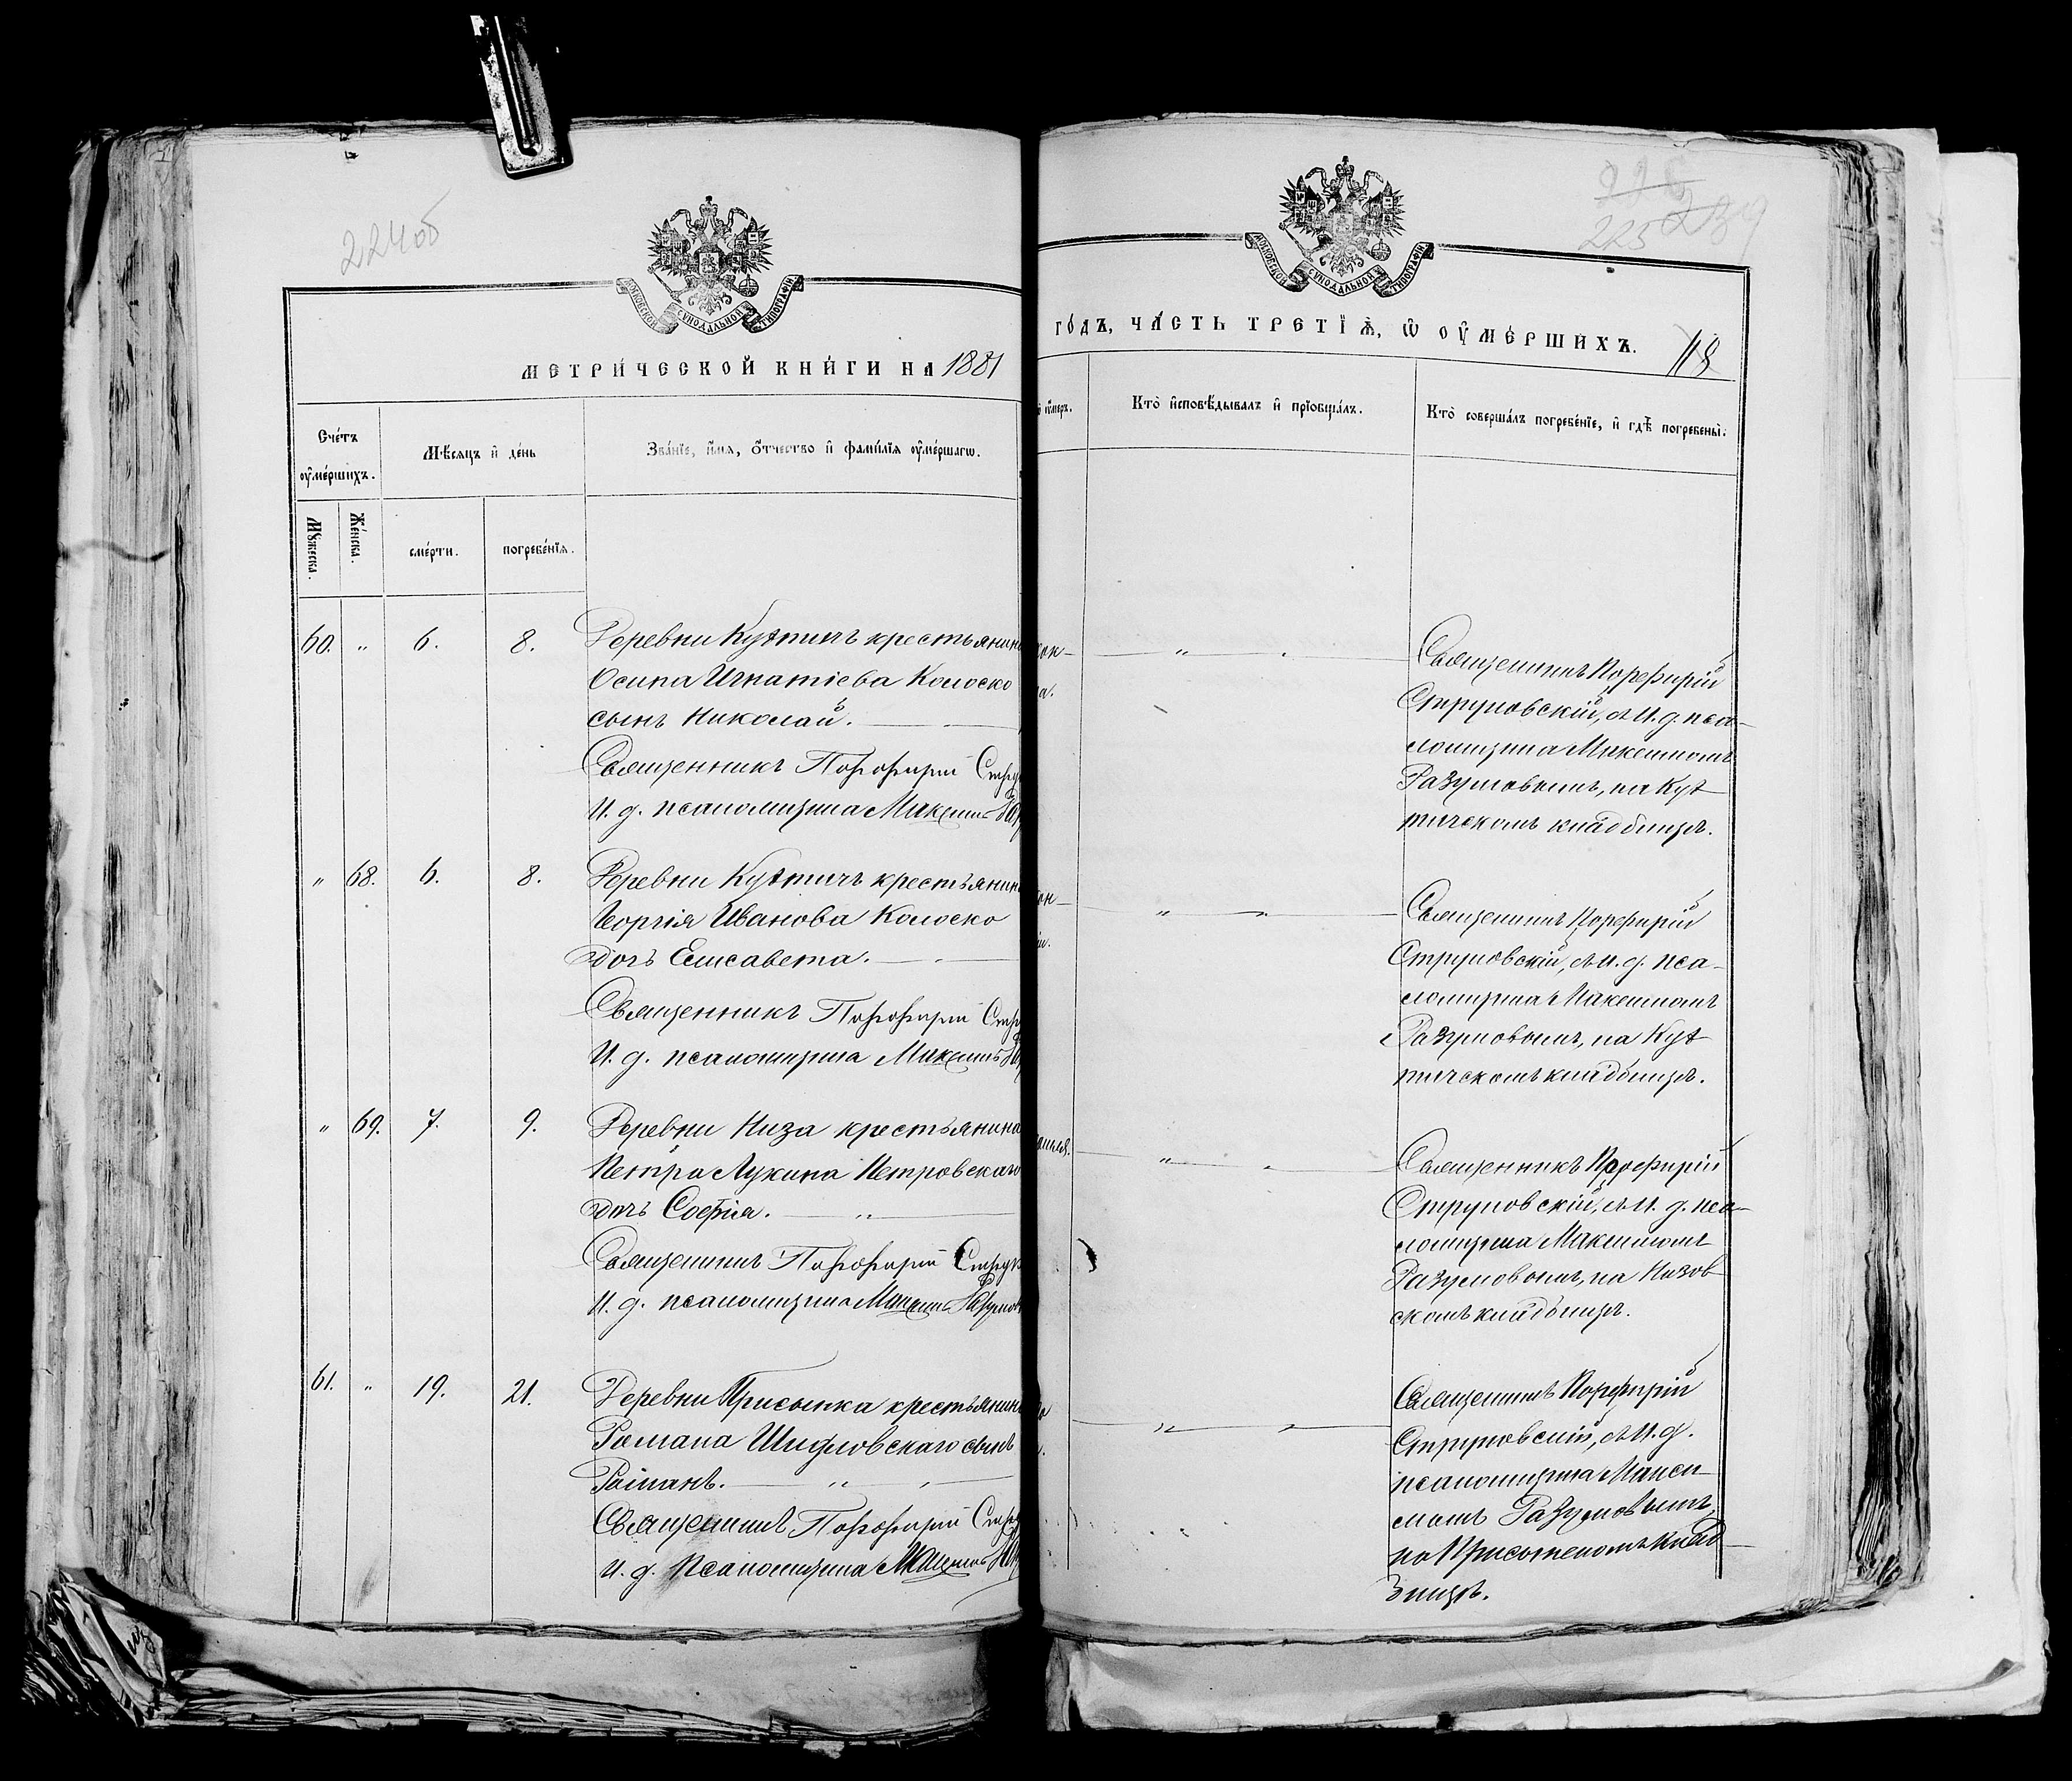 224об
МОСКОВСКОЙ СѴНОДАЛЬНОЙ ТИПОГРАФІИ
МЕТРИ́ЧЕСКОЙ КНИ́ГИ НА 1881
Сче́тъ ѹ҆ме́ршихъ.
Мѣ́сяцъ и҆ де́нь
Зва́нїе, и҆́мя, ѻ҆́тчество и҆ фами́лїя ѹ҆ме́ршагѡ.
Мꙋ́жеска.
Же́нска.
сме́рти.
погребе́нїя.
60. „ 6. 8. Деревни Кутничъ крестьянин
Осипа Игнатіева Колоско
сынъ Николай.
Священникъ Порфирій Стру
И. д. псаломщика Максимъ Раз
„ 68. 6. 8. Деревни Кутничъ крестьянин
Георгія Иванова Колоско
дочь Елисавета.
Священникъ Порфирій Стру
И. д. псаломщика Максимъ Раз
„ 69. 7. 9. Деревни Низа крестьянина
Петра Лукина Петровскаго
дочь Софія. „
Священникъ Порфирій Струк
И. д. псаломщика Максимъ Разумов
61. „ 19. 21. Деревни Присынка крестьянин
Романа Шидловскаго сынъ
Романъ. „
Священникъ Порфирій Стру
И. д. Псаломщика Максимъ Раз
225
МОСКОВСКОЙ СѴНОДАЛЬНОЙ ТИПОГРАФІИ
ГО́ДЪ, ЧА́СТЬ ТРЕТЇѦ, Ѡ҆ ОУ҆МЕ́РШИХЪ. 118
ѹ҆́меръ.
Кто̀ и҆сповѣ́дывалъ и҆ прїѡбща́лъ.
Кто̀ соверша́лъ погребе́нїе, и҆ гдѣ̀ погребены̀.
„
Священникъ Порфирій
Струковскій, съ И. д. пса-
ломщика Максимомъ
Разумовымъ, на Кут
ничскомъ кладбищѣ.
„
Священникъ Порфирій
Струковскій, съ И. д. пса-
ломщика Максимомъ
Разумовымъ, на Кут
ничскомъ кладбищѣ.
„
Священникъ Порфирій
Струковскій, съ И. д. пса-
ломщика Максимомъ
Разумовымъ, на Низов
скомъ кладбищѣ.
„
Священникъ Порфирій
Струковскій, съ И. д.
псаломщика Макси-
момъ Разумовымъ,
на кладби-
щѣ.